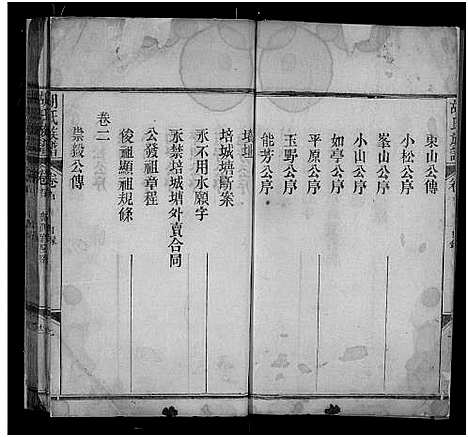 東山公傳
小松公序
峯山公序
小山公序
如亭公序
平原公序
玉野公序
能芳公序
培城塘所案
永不用水願字
永禁培城塘外賣合同
公發祖章程
俊祖顯祖規條
卷二
崇毅公傳
胡氏族譜